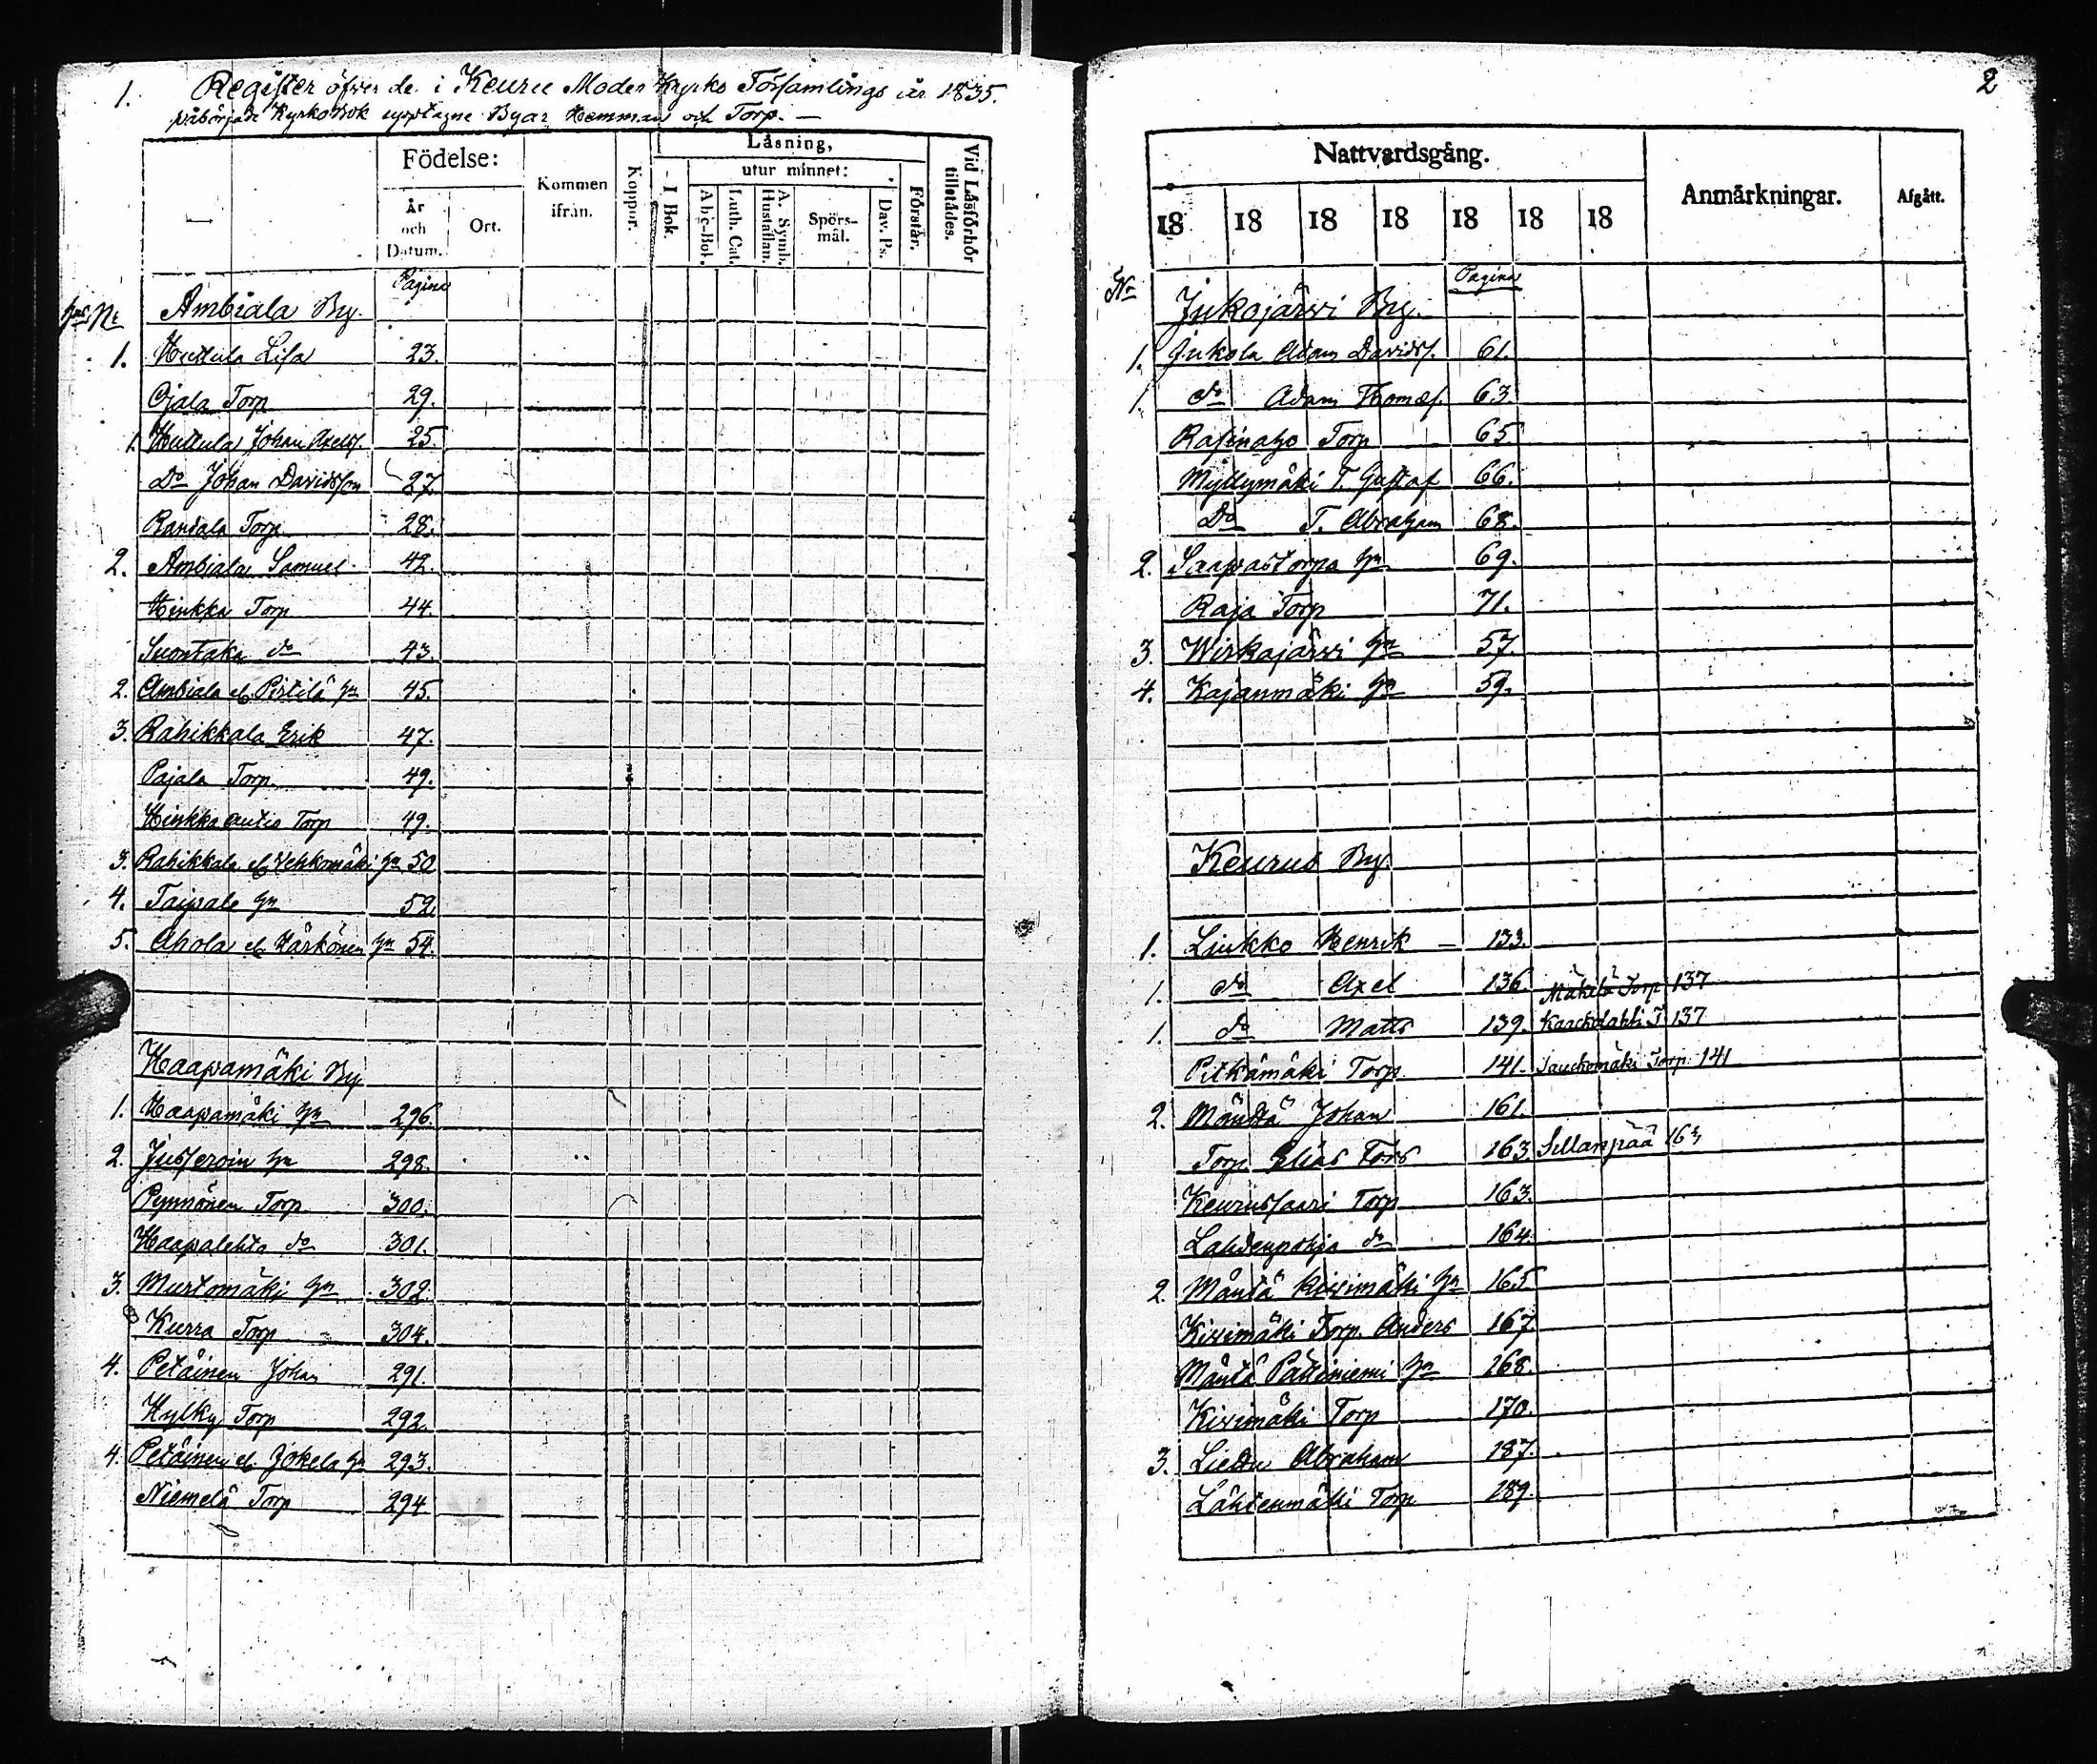 1. Register öfver de i Keuru Moder Kyrko Församlings år 1835.
påbörjade Kyrkobok upptagne Byar Hemman och Torp. —
Födelse:
År och Datum.
Ort.
Kommen ifrån.
Koppor.
Läsning,
I Bok.
utur minnet:
Abc-Bok.
Luth. Cat.
A. Symb. Hustaflan.
Spörs-mål.
Dav. Ps.
Förstår.
Vid Läsförhör tillstädes.
Pagina
No Ambiala By.
1. Huttula Lisa 23.
Ojala Torp 29.
1. Huttula Johan Axelss. 25.
Do Johan Davidsson 27.
Randala Torp 28.
2. Ambiala Samuel 42.
Hinkka Torp 44.
Suontaka do 43.
2. Ambiala el. Pirtilä hn 45.
3. Rahikkala Erik 47.
Pajala Torp 49.
Hinkka autio Torp 49.
3. Rahikkala el. Vehkomäki hn 50
4. Taipale hn 52.
5. Ahola el. Härkönen hn 54.
Haapamäki By
1. Haapamäki hn 296.
2. Jusseroin hn 298.
Pynnönen Torp 300.
Haapalehto do 301.
3. Murtomäki hn 302.
Kurra Torp 304.
4. Petäinen Johan 291.
Hylky Torp 292.
4. Petäinen el. Jokela hn 293.
Niemelä Torp 294
2
Nattvardsgång.
Anmärkningar.
Afgått.
18 18 18 18 18 18 18
Pagina
No Jukojärvi By.
1. Jukola Adam Davidss. 61.
1. do Adam Thomas. 63
Rasinaho Torp 65
Myllymäki T. Gustaf 66.
Do T. Abraham 68.
2. Saapastorpa hn 69.
Raja Torp 71.
3. Wirkajärvi hn 57.
4. Kajanmäki hn 59.
Keurus By.
1. Liukko Henrik — 133.
1. do Axel 136. Mäkelä Torp 137
1. do Matts 139. Kaackolahti T. 137
Pitkämäki Torp. 141. Sauckomäki Torp 141
2. Mändtä Johan 161.
Torp. Elias Fors 163. Sillanpää 163
Keurussaari Torp 163.
Lahdenpohja do 164.
2. Mäntä Kivimäki hn 165
Kivimäki Torp. Anders 167.
Mäntä Pättiniemi hn 168.
Kivimäki Torp 170.
3. Liedu Abraham 187.
Lähdenmäki Torp 189.